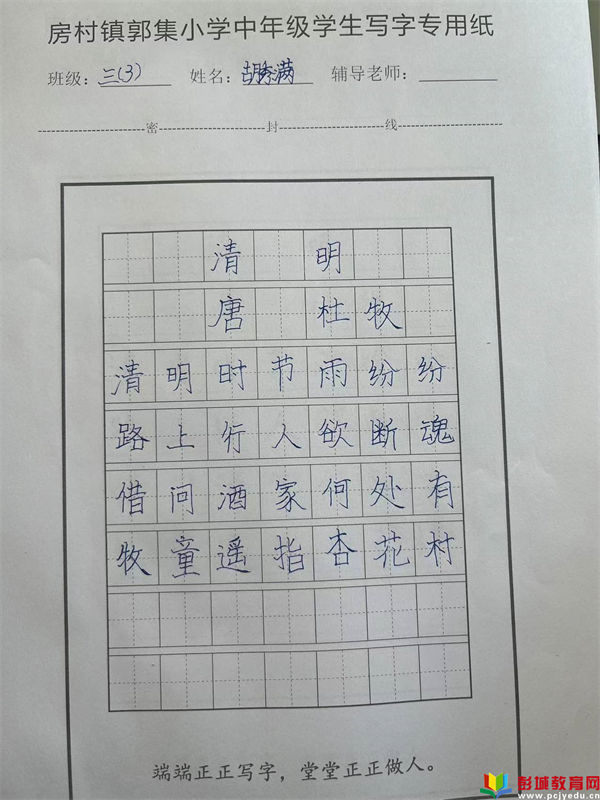 房村镇郭集小学中年级学生写字专用纸
班级：三(3) 姓名：胡秀满 辅导老师：
密 封 线
清 明
唐 杜牧
清明时节雨纷纷
路上行人欲断魂
借问酒家何处有
牧童遥指杏花村
端端正正写字，堂堂正正做人。
彭城教育网
www.pcjyedu.cn